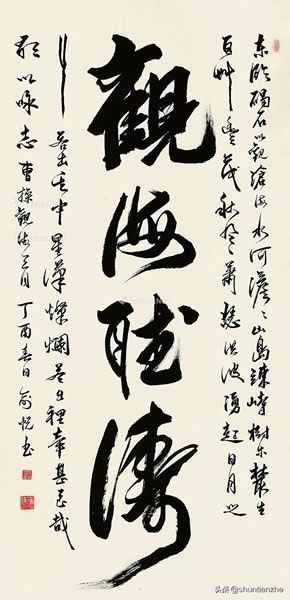 東臨碣石以觀滄海水何澹〻山島竦峙樹木叢生
百艸豐茂秋風蕭瑟洪波湧起日月之
觀海聽濤
行若出其中星漢燦爛若出其裡幸甚至哉
歌以詠志 曹操觀 丁酉春日 俞悦书
头条 @shuntianzhe